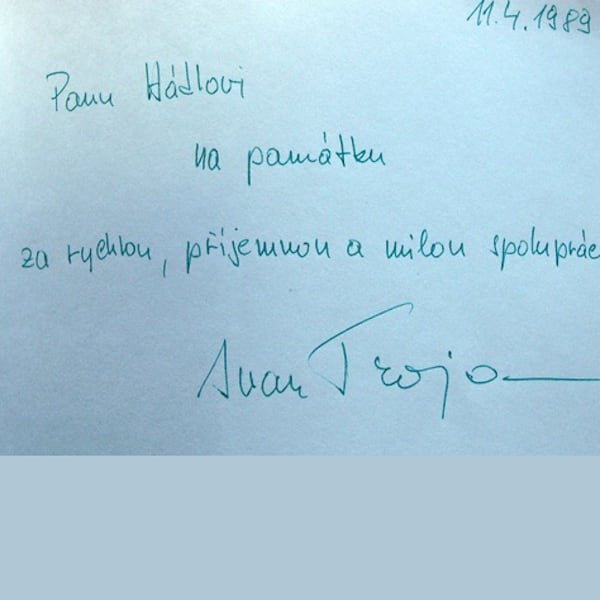 11.4.1989
Panu Hádlovi
na památku
za rychlou, příjemnou a milou spoluprác
Ivan Trojan